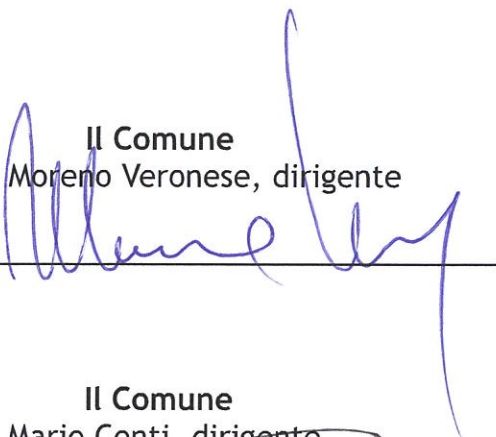 Il Comune
Moreno Veronese, dirigente
Il Comune
Mario Conti, dirigente